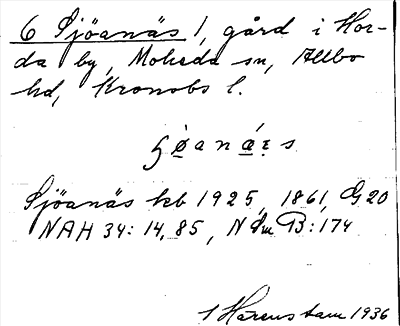 6 Sjöanäs 1, gård i Hor-
da by, Moheda sn, Allbo
hd, Kronobs l.
Sjöanäs kb 1925, 1861, G 20
NAH 34: 14, 85, N Sm B: 174
1936